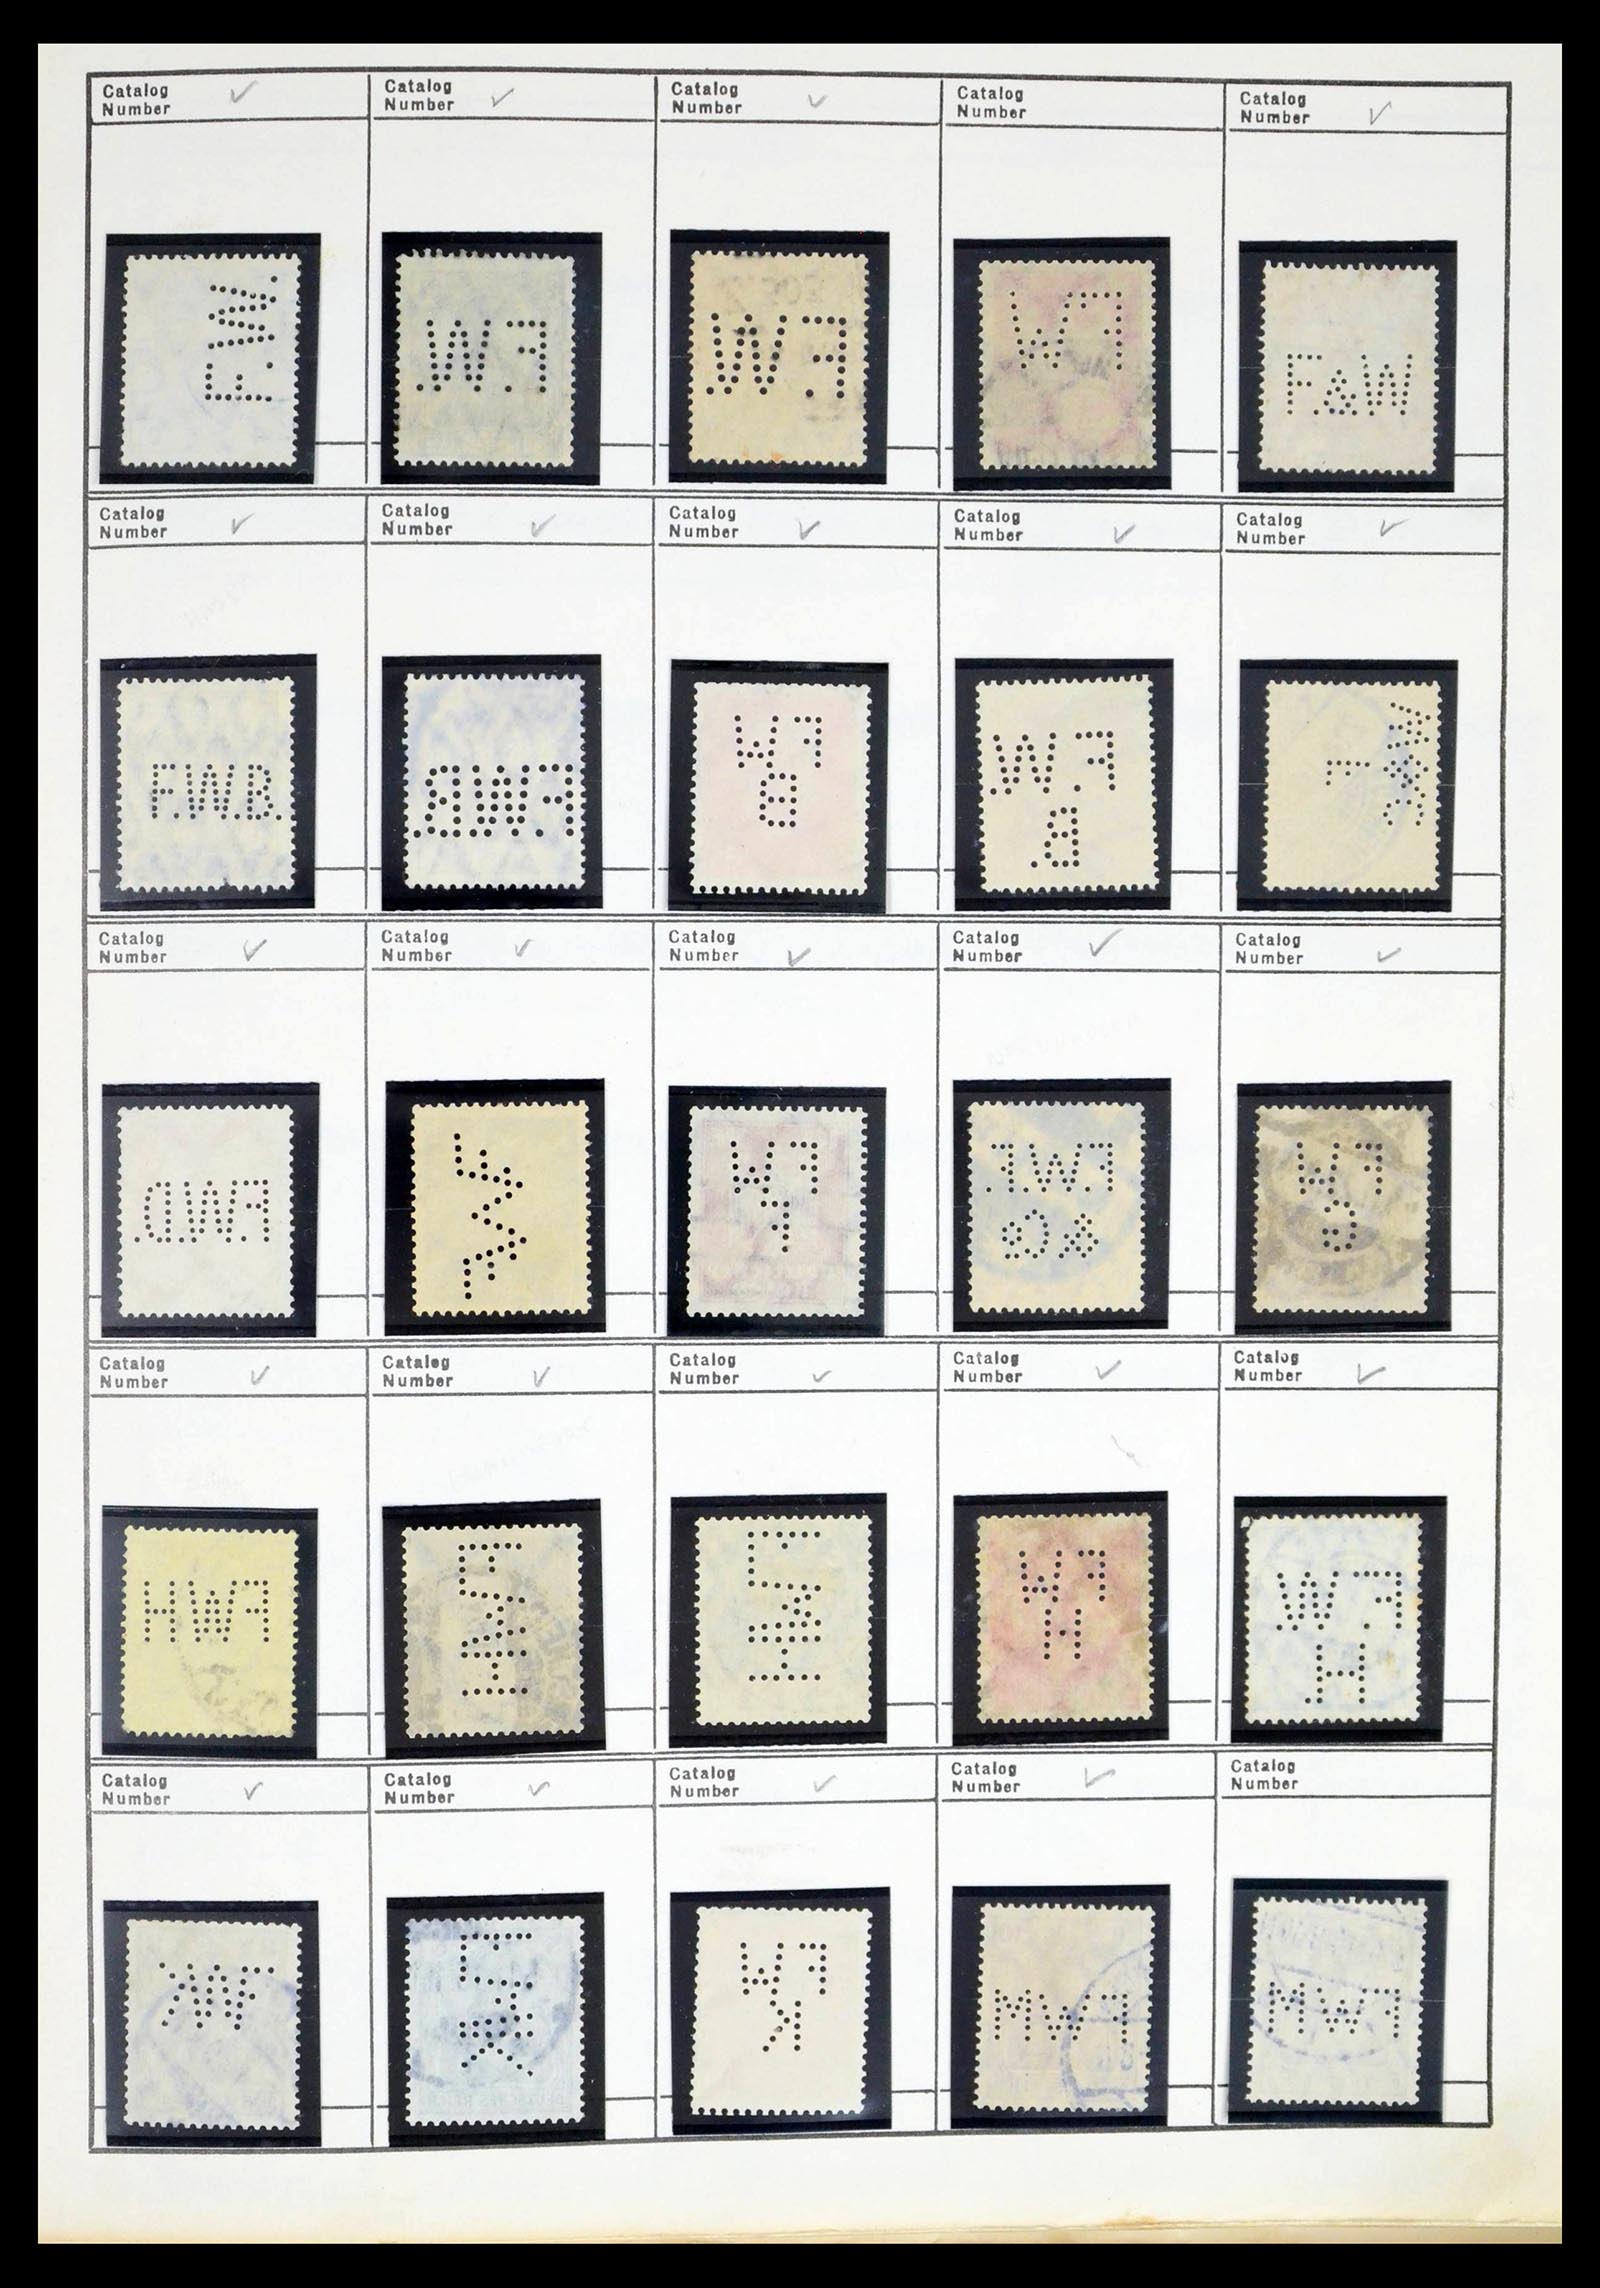 Catalog Number ✓ Catalog Number ✓ Catalog Number ✓ Catalog Number Catalog Number ✓
F.W. F.W. F.W. FW F.&W
Catalog Number ✓ Catalog Number ✓ Catalog Number ✓ Catalog Number ✓ Catalog Number ✓
F.W.B. F.W.B. FW F.W.
B B.
Catalog Number ✓ Catalog Number ✓ Catalog Number ✓ Catalog Number ✓ Catalog Number ✓
F.W.D. FW F.W.F. FW
F &Co G
Catalog Number ✓ Catalog Number ✓ Catalog Number ✓ Catalog Number ✓ Catalog Number ✓
FWH FWH FWH FW F.W.
H H.
Catalog Number ✓ Catalog Number ✓ Catalog Number ✓ Catalog Number ✓ Catalog Number
FWK FWK FW FWM FWM
K